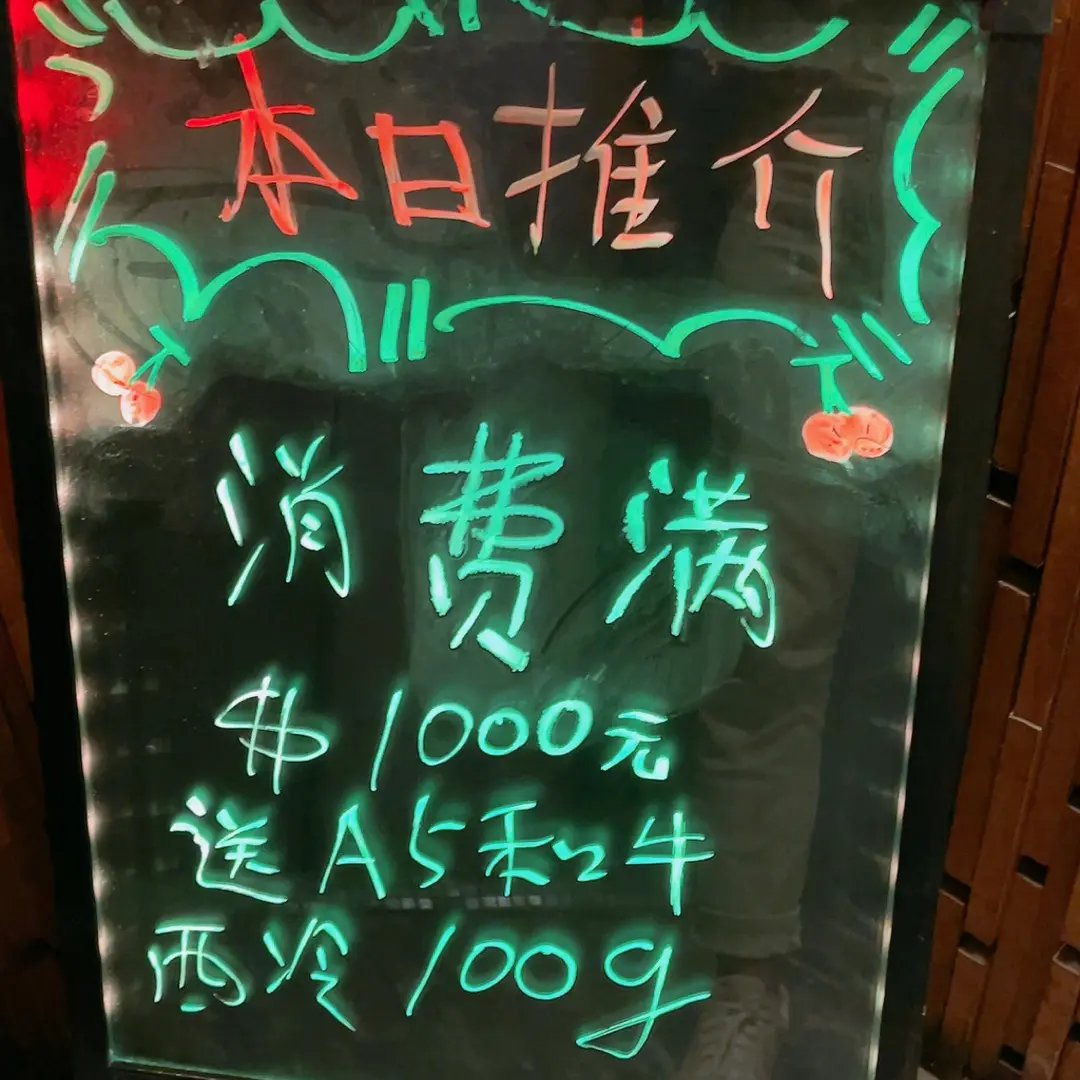 本日推介
消费满
$1000元
送A5和牛
西冷100g